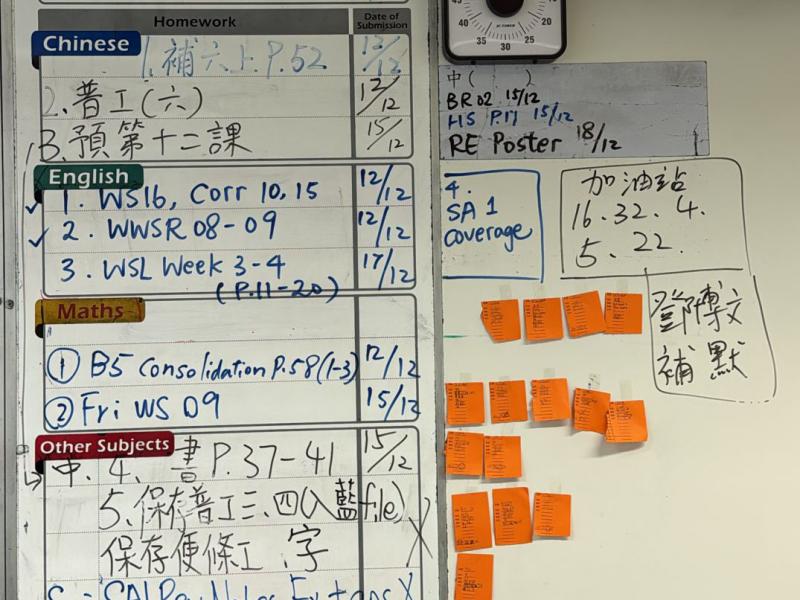 Homework
Date of Submission
Chinese
1. 補六上 P.52 12/12
2. 普工(六) 12/12
3. 預第十二課 15/12
English
1. WS16, Corr 10, 15 12/12
2. WWSR 08-09 12/12
3. WSL Week 3-4 17/12
(P.11-20)
Maths
① B5 Consolidation P.58 (1-3) 12/12
② Fri WS 09 15/12
Other Subjects
中. 4. 書 P.37-41 15/12
5. 保存普工三、四(入藍file)
保存便條工、字 X
45
40
35
30
25
20
15
中( )
BR 02 15/12
HS P.17 15/12
RE Poster 18/12
4.
SA 1
coverage
加油站
16. 32. 4.
5. 22.
鄧博文
補默